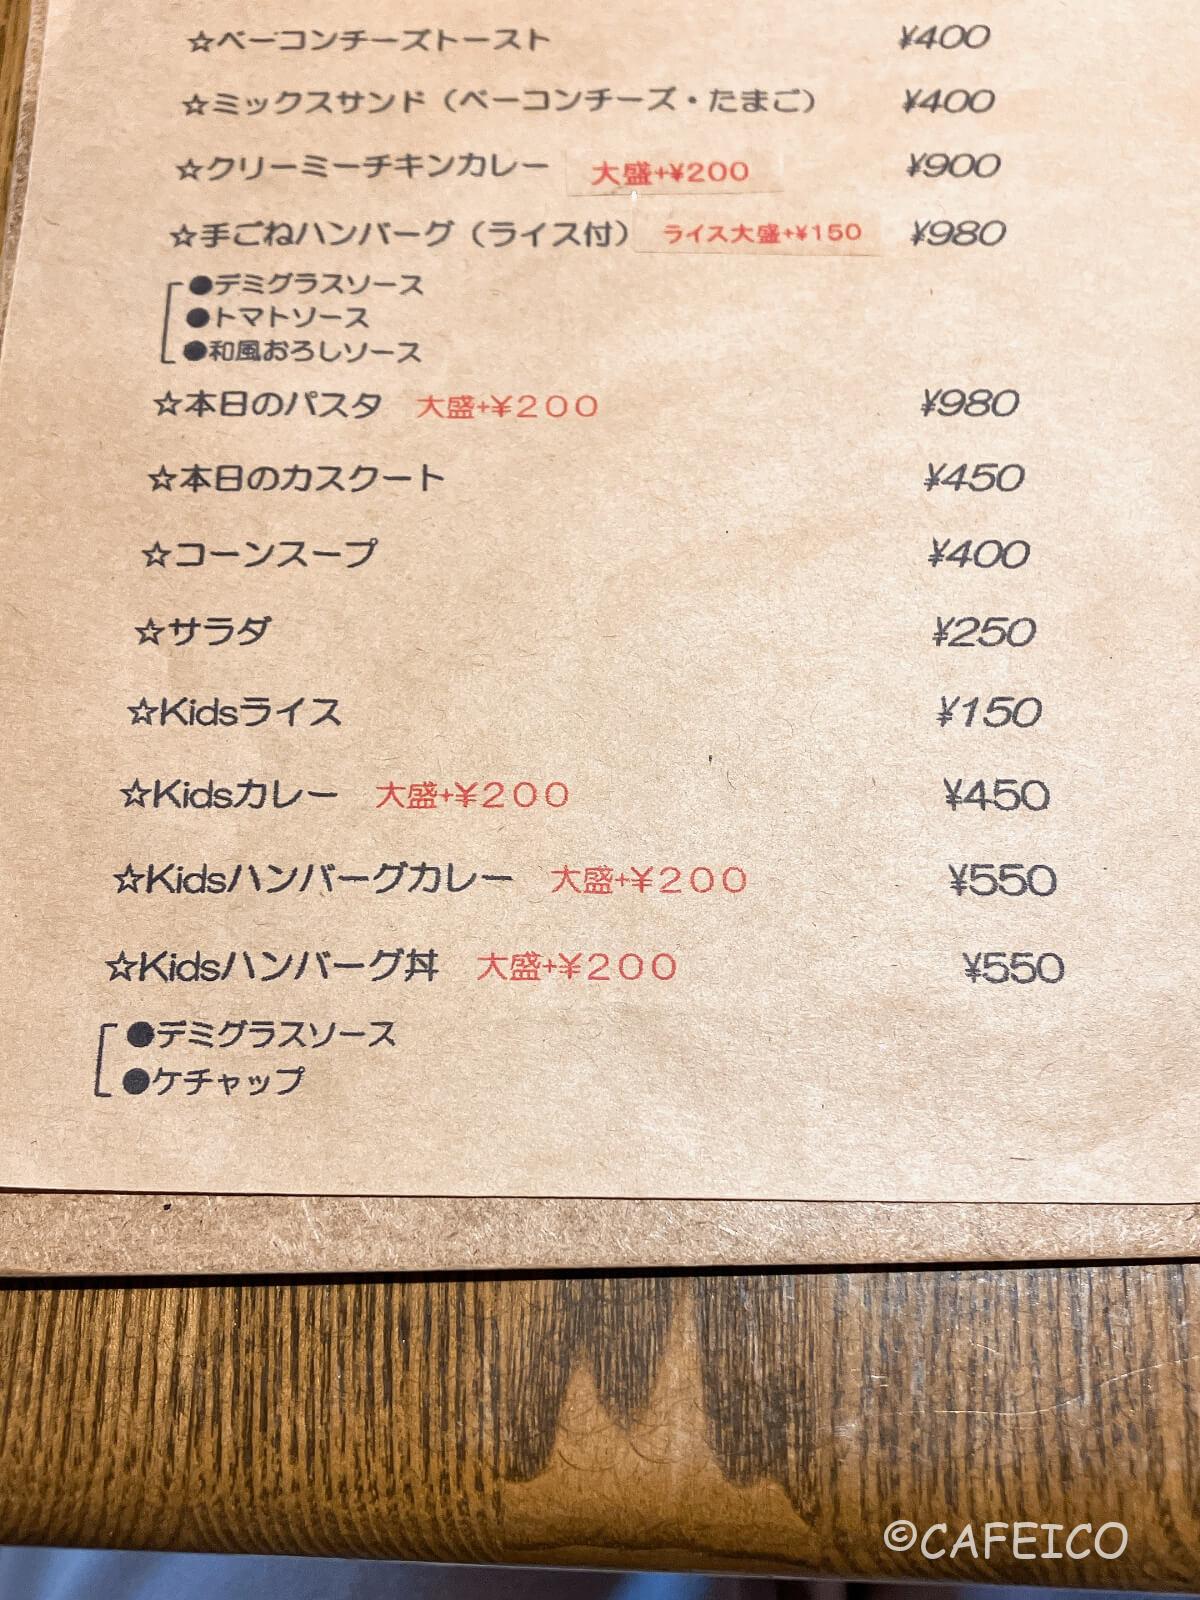 ☆ベーコンチーズトースト ¥400
☆ミックスサンド（ベーコンチーズ・たまご） ¥400
☆クリーミーチキンカレー 大盛+¥200 ¥900
☆手ごねハンバーグ（ライス付） ライス大盛+¥150 ¥980
●デミグラスソース
●トマトソース
●和風おろしソース
☆本日のパスタ 大盛+¥200 ¥980
☆本日のカスクート ¥450
☆コーンスープ ¥400
☆サラダ ¥250
☆Kidsライス ¥150
☆Kidsカレー 大盛+¥200 ¥450
☆Kidsハンバーグカレー 大盛+¥200 ¥550
☆Kidsハンバーグ丼 大盛+¥200 ¥550
●デミグラスソース
●ケチャップ
©CAFEICO